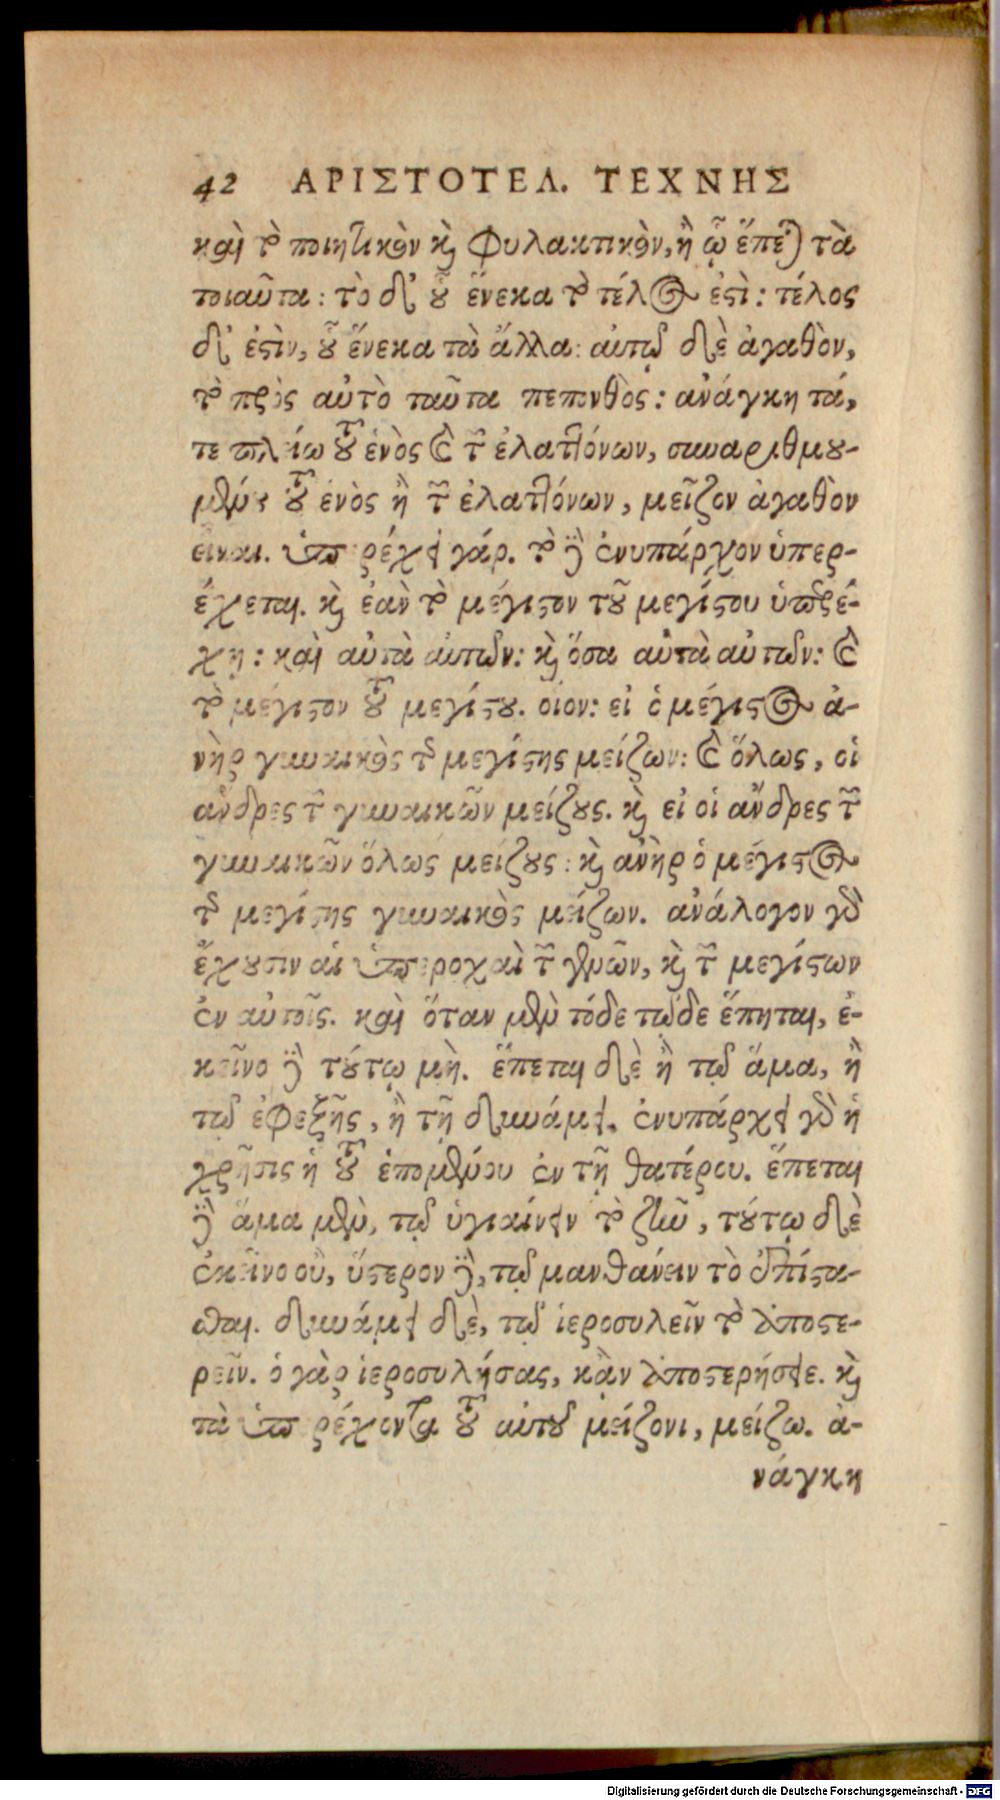 42 ΑΡΙΣΤΟΤΕΛ. ΤΕΧΝΗΣ
καὶ τὸ ποιητικὸν καὶ φυλακτικὸν, ἢ ᾧ ἕπεται τὰ
τοιαῦτα: τὸ δ' οὗ ἕνεκα τὸ τέλος ἐστὶ: τέλος
δ' ἐστὶν, οὗ ἕνεκα τὰ ἄλλα: αὐτῷ δὲ ἀγαθὸν,
τὸ πρὸς αὐτὸ ταῦτα πεπονθὸς: ἀνάγκη τά,
τε πλείω τοῦ ἑνὸς καὶ τῶν ἐλαττόνων, συναριθμου-
μένου τοῦ ἑνὸς ἢ τῶν ἐλαττόνων, μεῖζον ἀγαθὸν
εἶναι. ὑπερέχει γάρ. τὸ δὲ ἐνυπάρχον ὑπερ-
έχεται. καὶ ἐὰν τὸ μέγιστον τοῦ μεγίστου ὑπερέ-
χῃ: καὶ αὐτὰ αὐτῶν: καὶ ὅσα αὐτὰ αὐτῶν: καὶ
τὸ μέγιστον τοῦ μεγίστου. οἷον: εἰ ὁ μέγιστος ἀ-
νὴρ γυναικὸς τῆς μεγίστης μείζων: καὶ ὅλως, οἱ
ἄνδρες τῶν γυναικῶν μείζους. καὶ εἰ οἱ ἄνδρες τῶν
γυναικῶν ὅλως μείζους: καὶ ἀνὴρ ὁ μέγιστος
τῆς μεγίστης γυναικὸς μείζων. ἀνάλογον γὰρ
ἔχουσιν αἱ ὑπεροχαὶ τῶν γενῶν, καὶ τῶν μεγίστων
ἐν αὐτοῖς. καὶ ὅταν μὲν τόδε τῷδε ἕπηται, ἐ-
κεῖνο δὲ τούτῳ μὴ. ἕπεται δὲ ἢ τῷ ἅμα, ἢ
τῷ ἐφεξῆς, ἢ τῇ δυνάμει. ἐνυπάρχει γὰρ ἡ
χρῆσις ἡ τοῦ ἑπομένου ἐν τῇ θατέρου. ἕπεται
δὲ ἅμα μὲν, τῷ ὑγιαίνειν τὸ ζῆν, τούτῳ δὲ
ἐκεῖνο οὒ, ὕστερον δὲ, τῷ μανθάνειν τὸ ἐπίστα-
σθαι. δυνάμει δὲ, τῷ ἱεροσυλεῖν τὸ ἀποστε-
ρεῖν. ὁ γὰρ ἱεροσυλήσας, κἂν ἀποστερήσειε. καὶ
τὰ ὑπερέχοντα τοῦ αὐτοῦ μείζονι, μείζω. ἀ-
νάγκη
Digitalisierung gefördert durch die Deutsche Forschungsgemeinschaft - DFG